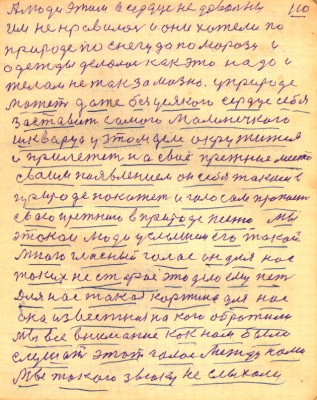 А люди этим в сердце не довольны 110
им не нравилось и они хотели по
природе по снегу да по морозу и
одежды делали как это надо и
телам не так замозно. у природе
может даже без усякого сердце себя
заставит самого малинчкого
шкварца у этом деле окружится
и прилетит на своё прежние место
своим появлением он себя таким в
природе покажет и голосам пропоит
свою прежнию в природе песню Мы
этакои люди услышим его такой
много гласный голас он для нас
таких не старое это дело ему петь
Для нас такая картина для нас
она известния на кого обратили
Мы все внимание как нам было
слушат этот голос между нами
Мы такого звоку не слыхали